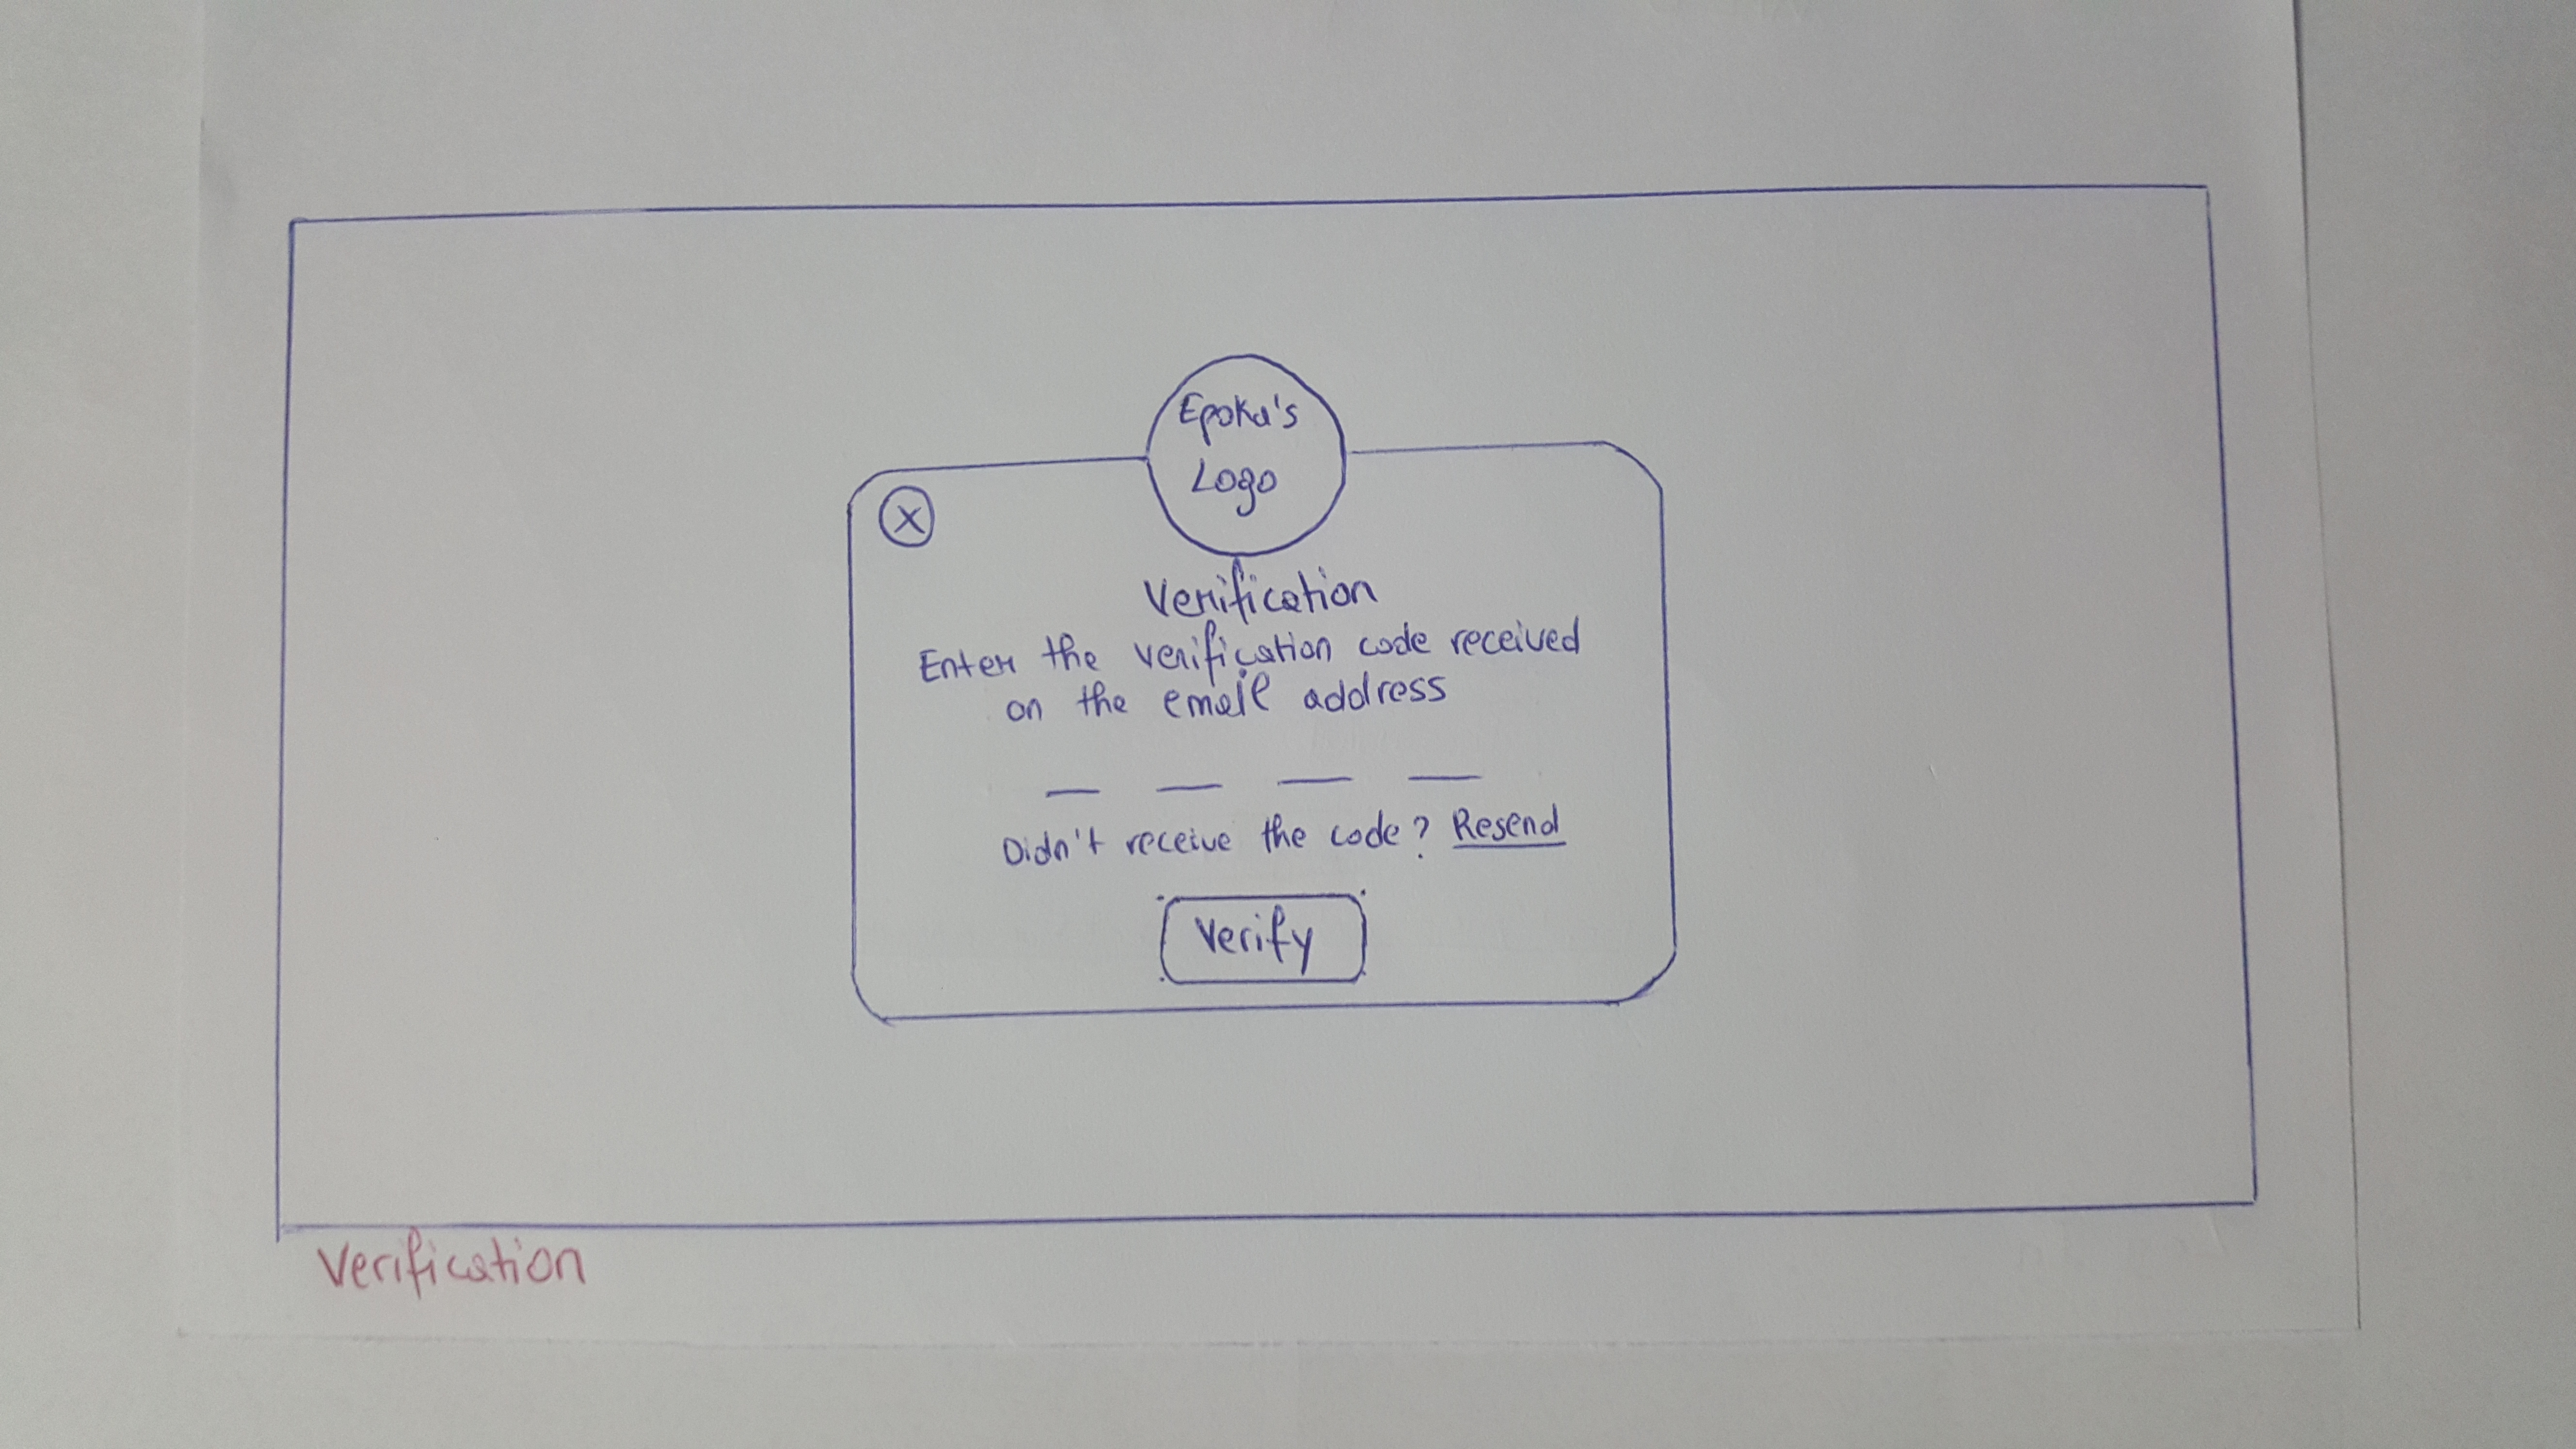 Epoka's
Logo
X
Verification
Enter the verification code received
on the email address
Didn't receive the code? Resend
Verify
Verification